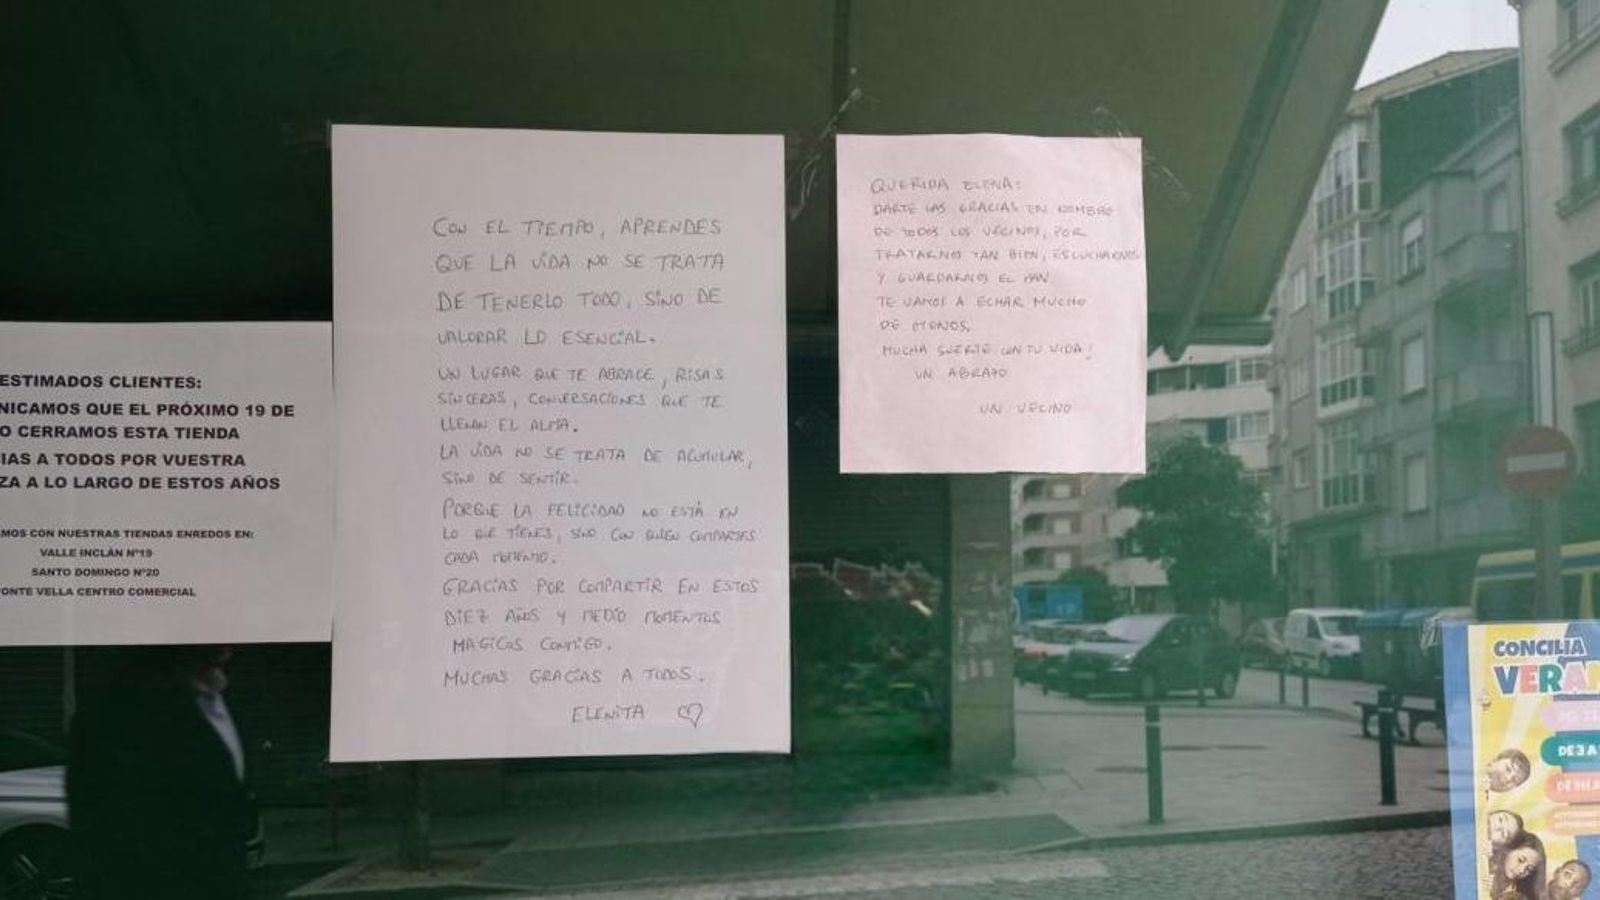 ESTIMADOS CLIENTES:
NICAMOS QUE EL PRÓXIMO 19 DE
O CERRAMOS ESTA TIENDA
IAS A TODOS POR VUESTRA
ZA A LO LARGO DE ESTOS AÑOS
MOS CON NUESTRAS TIENDAS ENREDOS EN:
VALLE INCLÁN Nº19
SANTO DOMINGO Nº20
ONTE VELLA CENTRO COMERCIAL
CON EL TIEMPO, APRENDES
QUE LA VIDA NO SE TRATA
DE TENERLO TODO, SINO DE
VALORAR LO ESENCIAL.
UN LUGAR QUE TE ABRACE, RISAS
SINCERAS, CONVERSACIONES QUE TE
LLENAN EL ALMA.
LA VIDA NO SE TRATA DE ACUMULAR,
SINO DE SENTIR.
PORQUE LA FELICIDAD NO ESTÁ EN
LO QUE TIENES, SINO CON QUIEN COMPARTES
CADA MOMENTO.
GRACIAS POR COMPARTIR EN ESTOS
DIEZ AÑOS Y MEDIO MOMENTOS
MAGICOS CONMIGO.
MUCHAS GRACIAS A TODOS.
ELENITA
QUERIDA ELENA:
DARTE LAS GRACIAS EN NOMBRE
DE TODOS LOS VECINOS, POR
TRATARNOS TAN BIEN, ESCUCHARNOS
Y GUARDARNOS EL PAN.
TE VAMOS A ECHAR MUCHO
DE MENOS.
MUCHA SUERTE CON TU VIDA!
UN ABRAZO
UN VECINO
CONCILIA
VERA
DE 3 A